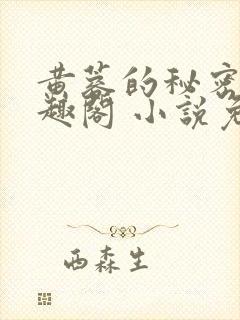 黄蓉的秘密
趣阁 小说免
西森生